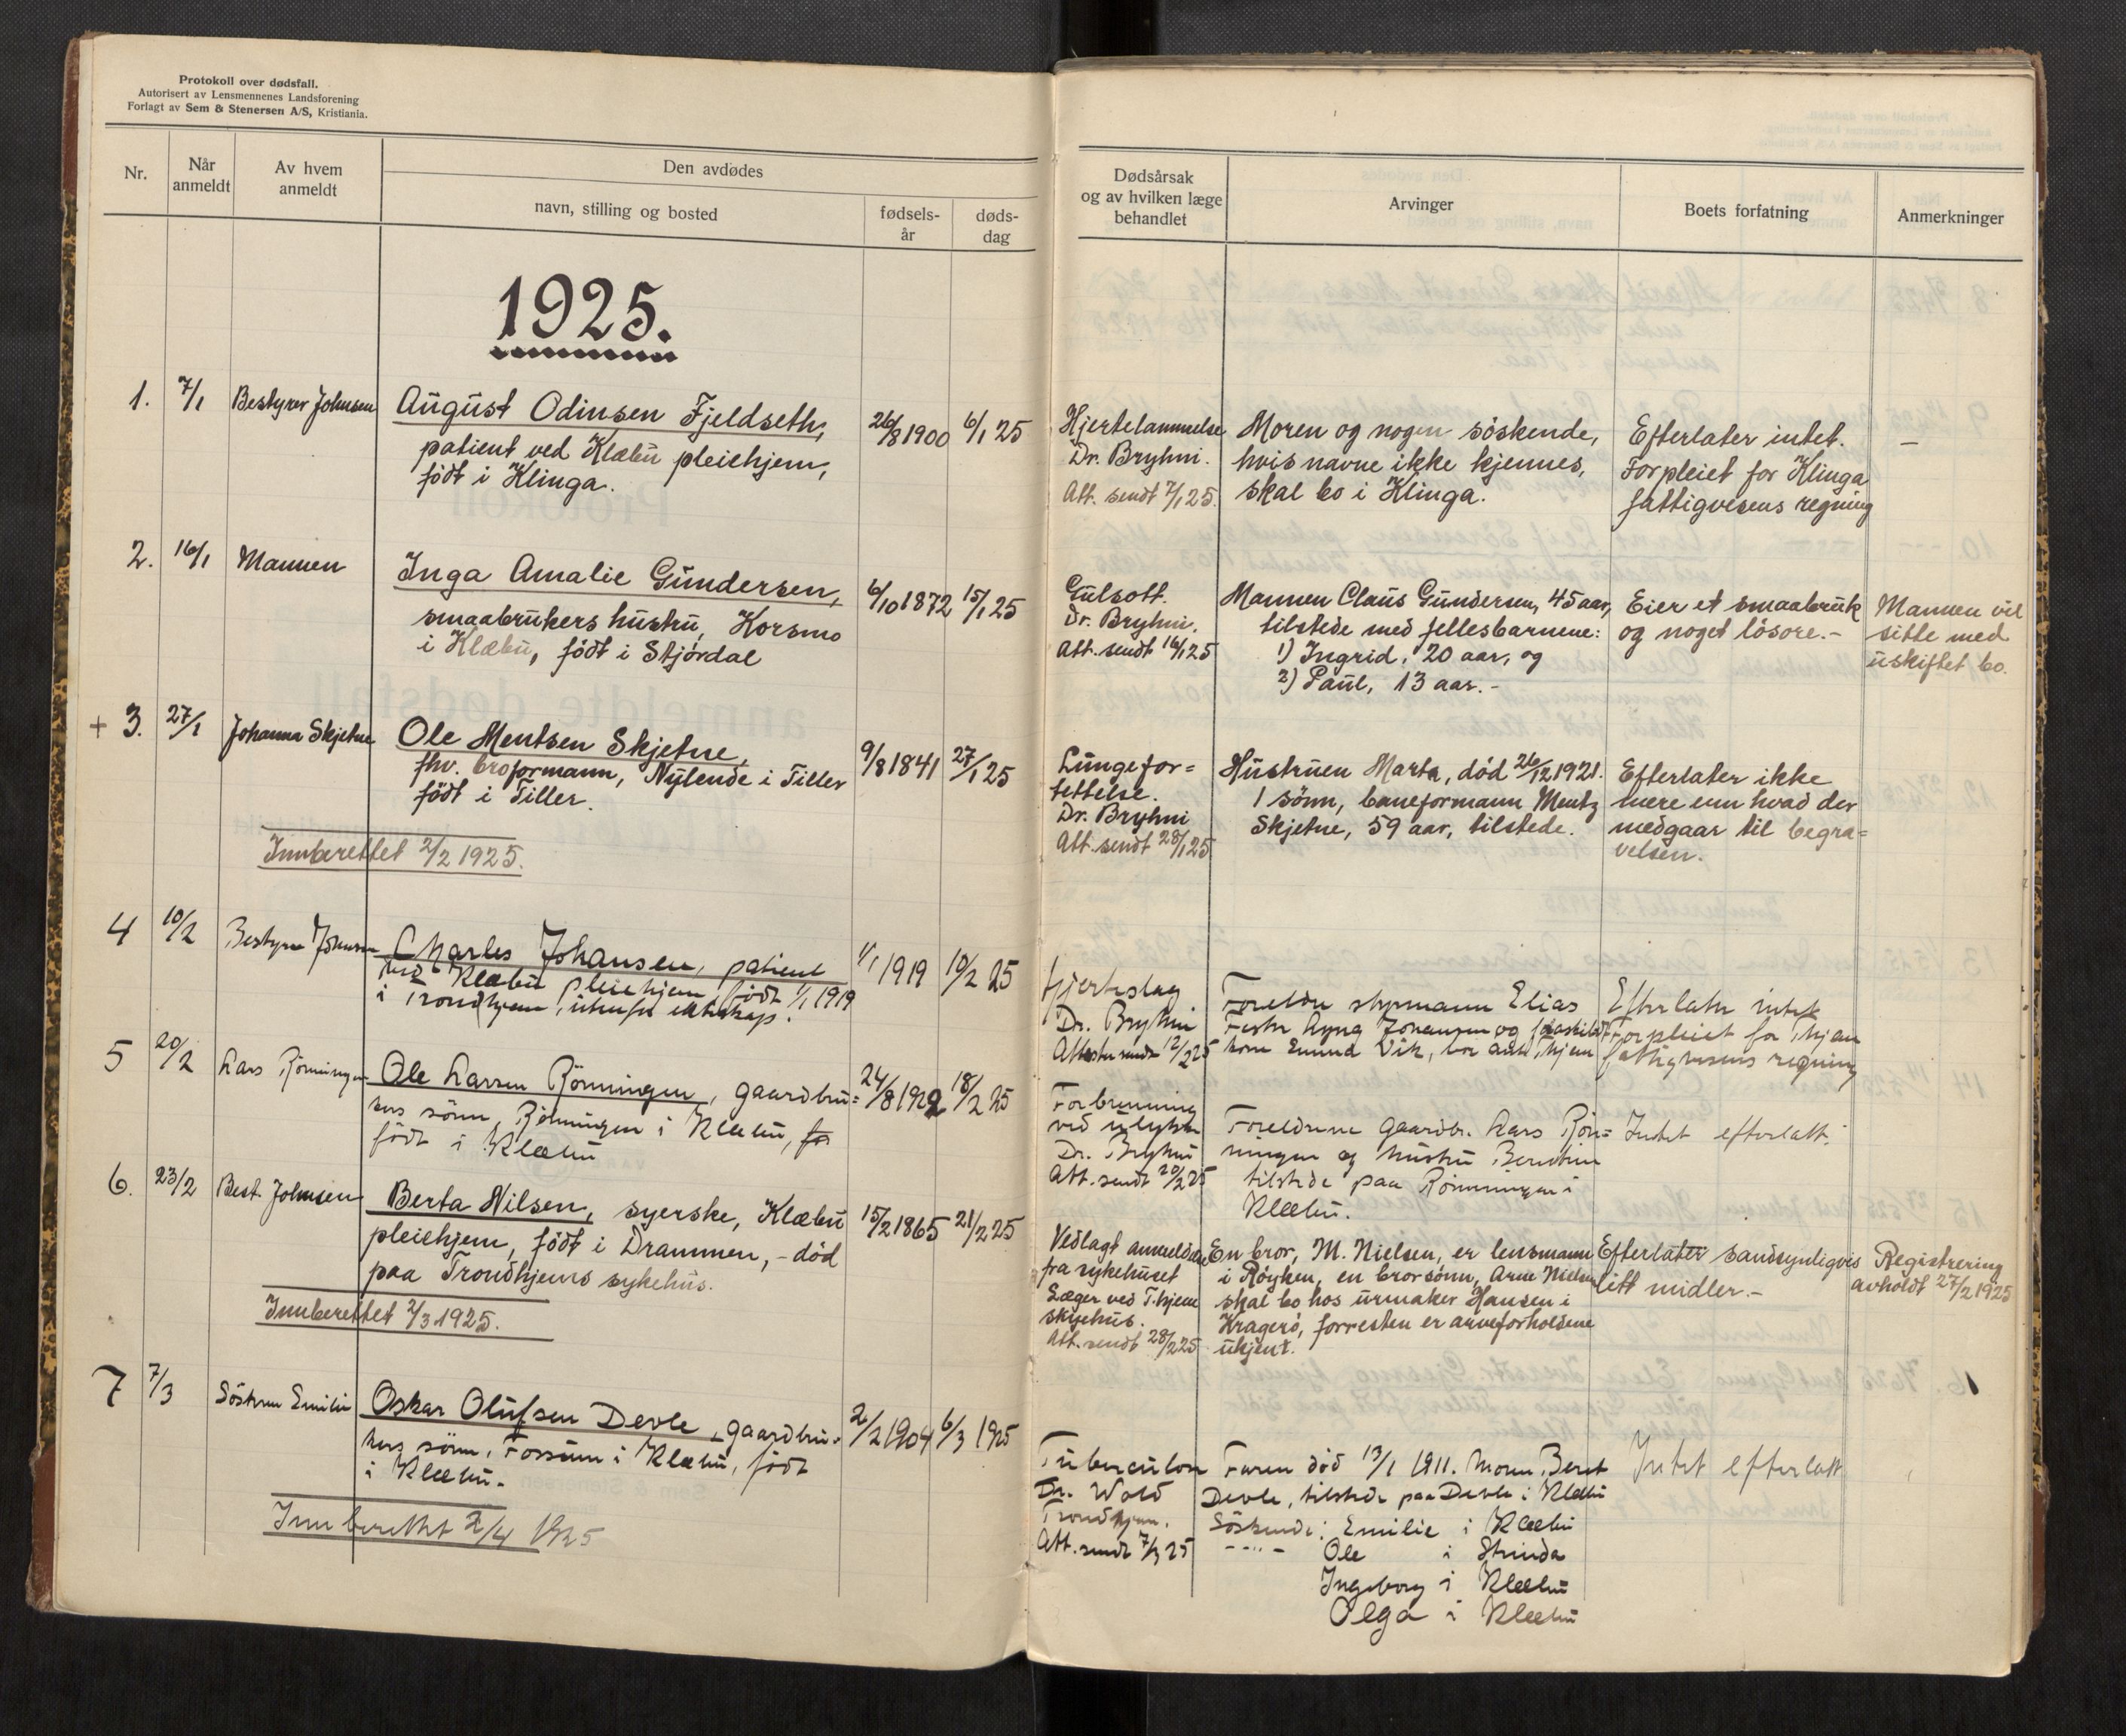 Protokoll over dødsfall.
Autorisert av Lensmennenes Landsforening
Forlagt av Sem & Stenersen A/S, Kristiania.
Nr.
Når
anmeldt
Av hvem
anmeldt
Den avdødes
navn, stilling og bosted
fødsels-
år
døds-
dag
Dødsårsak
og av hvilken læge
behandlet
Arvinger
Boets forfatning
Anmerkninger
1925.
1.
7/1
Bestyrer Johnsen
August Odinsen Fjeldseth,
patient ved Klæbu pleiehjem,
födt i Klinga.
26/8 1900
6/1 25
Hjertelammelse
Dr. Bryhni.
Att. sendt 7/1 25.
Moren og nogen söskende,
hvis navne ikke kjennes,
skal bo i Klinga.
Efterlater intet.
Forpleiet for Klinga
fattigvesens regning
—
2.
16/1
Mannen
Inga Amalie Gundersen,
smaabrukers hustru, Korsmo
i Klæbu, födt i Stjördal
6/10 1872
15/1 25
Gulsott.
Dr. Bryhni.
Att. sendt 16/1 25
Mannen Claus Gundersen, 45 aar,
tilstede med fellesbarnene:
1) Ingrid, 20 aar, og
2) Paul, 13 aar.-
Eier et smaabruk
og noget lösöre.-
Mannen vil
sitte med
uskiftet bo.
+ 3.
27/1
Johanna Skjetne
Ole Mentsen Skjetne,
fhv. broformann, Nylende i Tiller
födt i Tiller.
9/8 1841
27/1 25
Lungefor=
tettelse.
Dr. Bryhni
Att. sendt 28/1 25
Hustruen Marta, död 26/12 1921.
1 sönn, baneformann Mentz
Skjetne, 59 aar, tilstede.
Efterlater ikke
mere enn hvad der
medgaar til begra=
velsen.
Innberettet 2/2 1925.
4
10/2
Bestyrer Johnsen
Charles Johansen, patient
ved Klæbu pleiehjem, födt 1/1 1919
i Trondhjem, utenfor ekteskap.
1/1 1919
10/2 25
Hjerteslag
Dr. Bryhni
Attester sendt 12/2 25
Foreldre styrmann Elias
Johansen og fraskilt
Vik,
Efterlater intet
Forpleiet for Thjem
fattigvesens regning
5
20/2
Lars Rönningen
Ole Larsen Rönningen, gaardbru=
kers sönn, Rönningen i Klæbu,
födt i Klæbu
24/8 1922
18/2 25
Forbrenning
ved ulykke
Dr. Bryhni
Att. sendt 20/2 25
Foreldrene gaardbr. Lars Rön=
ningen og hustru
tilstede paa Rönningen i
Klæbu.
Intet efterlatt.
6.
23/2
Best. Johnsen
Berta Nilsen, syerske, Klæbu
pleiehjem, födt i Drammen, - död
paa Trondhjems sykehus.
15/2 1865
21/2 25
Vedlagt anmeldelse
fra sykehuset
Læger ved T.hjem
sykehus.
Att. sendt 28/2 25
En bror, M. Nielsen, er lensmann
i Röyken, en brorsönn, Arne Nielsen
skal bo hos urmaker Hansen i
Kragerö, forresten er arveforholdene
ukjent.
Efterlater sandsynligvis
litt midler.-
Registrering
avholdt 27/2 1925
Innberettet 2/3 1925.
7
7/3
Söstren Emilie
Oskar Olufsen Devle, gaardbru=
kers sönn, Fossum i Klæbu, födt
i Klæbu.
2/2 1904
6/3 1925
Tuberculose
Dr. Wold
Trondhjem.
Att. sendt 7/3 25
Faren död 13/1 1911. Moren Beret
Devle, tilstede paa Devle i Klæbu
Söskende: Emilie i Klæbu
-"- Ole i Strinda
Ingeborg i Klæbu
Olga i Klæbu
Intet efterlatt
Innberettet 2/4 1925